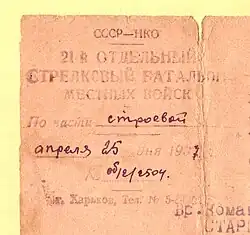 СССР—НКО
21-й ОТДЕЛЬНЫЙ
СТРЕЛКОВЫЙ БАТАЛЬОН
МЕСТНЫХ ВОЙСК
По части строевой
апреля 25 дня 194
г. Харьков, Тел. № 5-
Вр.
СТАР